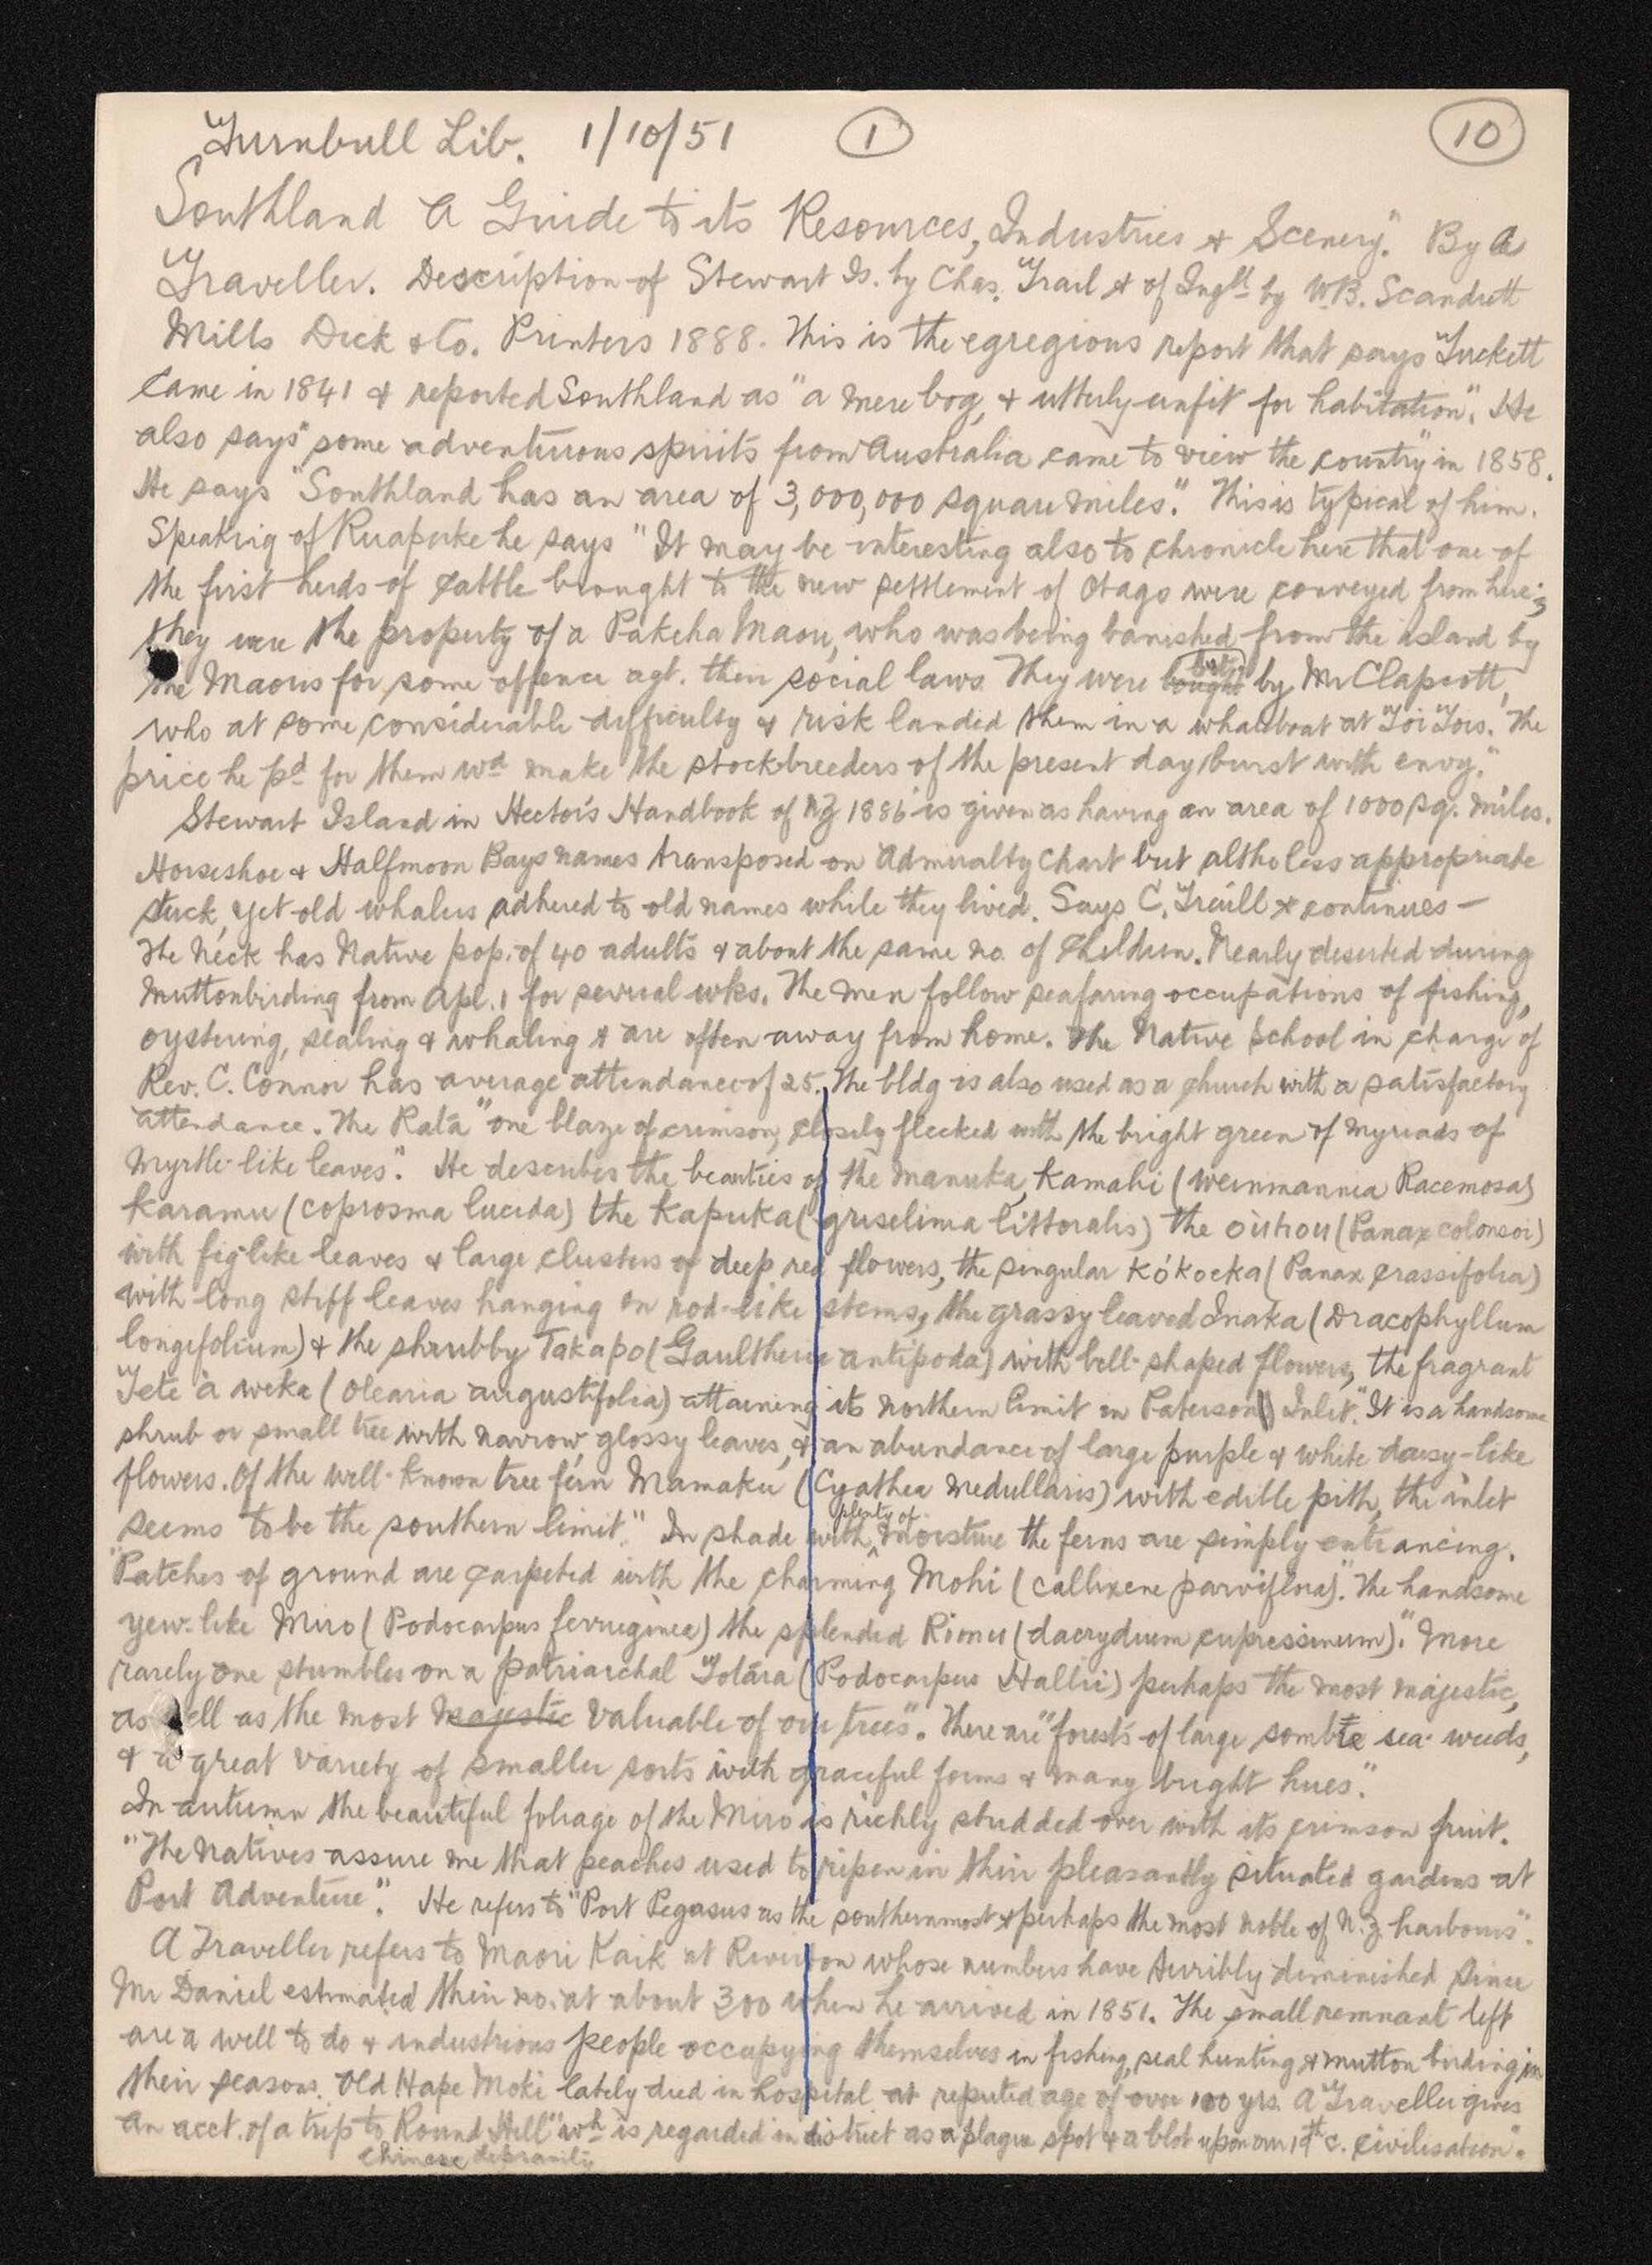 Turnbull Lib. 1/10/51 1 10
Southland A Guide to its Resources, Industries & Scenery." By A
Traveller. Description of Stewart Is. by Chas. Trail & of Ingll by W.B. Scandrett
Mills Dick & Co. Printers 1888. This is the egregious report that says Tuckett
came in 1841 & reported Southland as "a mere bog, & utterly unfit for habitation". He
also says "some adventurous spirits from Australia came to view the country" in 1858.
He says "Southland has an area of 3,000,000 square miles." This is typical of him.
Speaking of Ruapuke he says "It may be interesting also to chronicle here that one of
the first herds of cattle brought to the new settlement of Otago were conveyed from here;
they were the property of a Pakeha Maori, who was being banished from the island by
the Maoris for some offence agt. their social laws. They were bought by Mr Clapcott,
who at some considerable difficulty & risk landed them in a whaleboat at Toi Tois. The
price he pd for them wd make the stockbreeders of the present day burst with envy."
Stewart Island in Hector's Handbook of NZ 1886 is given as having an area of 1000 sq. miles.
Horseshoe & Halfmoon Bays names transposed on Admiralty Chart but altho less appropriate
stuck, yet old whalers adhered to old names while they lived. Says C. Traill & continues —
The Neck has Native pop. of 40 adults & about the same no. of children. Nearly deserted during
Muttonbirding from Apl. 1 for several wks. The men follow seafaring occupations of fishing,
oystering, sealing & whaling & are often away from home. The Native School in charge of
Rev. C. Connor has average attendance of 25. The bldg is also used as a church with a satisfactory
attendance. The Rata "one blaze of crimson, closely flecked with the bright green of myriads of
Myrtle-like leaves". He describes the beauties of the Manuka, Kamahi (Weinmannia Racemosa)
Karamu (Coprosma lucida) the Kapuka (griselinia littoralis) the oúhou (Panax colonsoi)
with fig like leaves & large clusters of deep red flowers, the singular Kókoeka (Panax crassifolia)
with long stiff leaves hanging on rod-like stems, the grassy leaved Inaka (Dracophyllum
longifolium) & the shrubby Takapo (Gaultheria antipoda) with bell-shaped flowers, the fragrant
Tete a weka (Olearia angustifolia) attaining its northern limit in Paterson Inlet". It is a handsome
shrub or small tree with narrow glossy leaves, & an abundance of large purple & white daisy-like
flowers. Of the well-known tree fern Mamaku (Cyathea Medullaris) with edible pith, the inlet
seems to be the southern limit." In shade with plenty of moisture the ferns are simply entrancing.
"Patches of ground are carpeted with the charming Mohi (callixene parviflora)". The handsome
yew-like Miro (Podocarpus ferruginea) the splendid Rimu (dacrydium cupressinum)." More
rarely one stumbles on a patriarchal Totara (Podocarpus Hallii) perhaps the most majestic,
as well as the most majestic valuable of our trees". There are "forests of large sombre sea-weeds,
& a great variety of smaller sorts with graceful forms & many bright hues".
In autumn the beautiful foliage of the Miro is richly studded over with its crimson fruit.
"The Natives assure me that peaches used to ripen in their pleasantly situated gardens at
Port Adventure". He refers to "Port Pegasus as the southernmost & perhaps the most noble of N.Z. harbours".
A Traveller refers to Maori Kaik at Riverton whose numbers have terribly diminished since
Mr Daniel estimated their no. at about 300 when he arrived in 1851. The small remnant left
are a well to do & industrious people occupying themselves in fishing, seal hunting & mutton birding in
their seasons. Old Hape Moki lately died in hospital at reputed age of over 100 yrs. A Traveller gives
an acct. of a trip to Round Hill "wh is regarded in district as a plague spot & a blot upon our 19th c. civilisation".
Chinese depravity